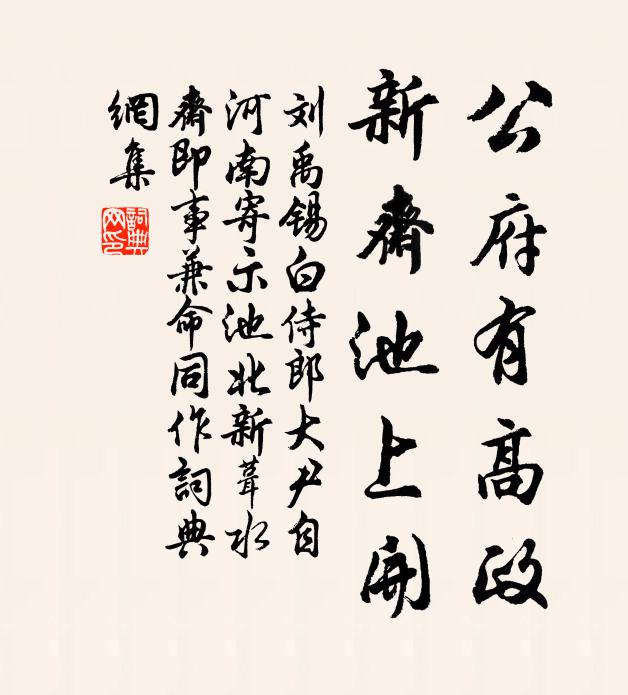 公府有高政
新齋池上開
刘禹锡白侍郎大尹自
河南寄示池北新葺水
齋即事兼命同作詞典
網集
詞典
网印